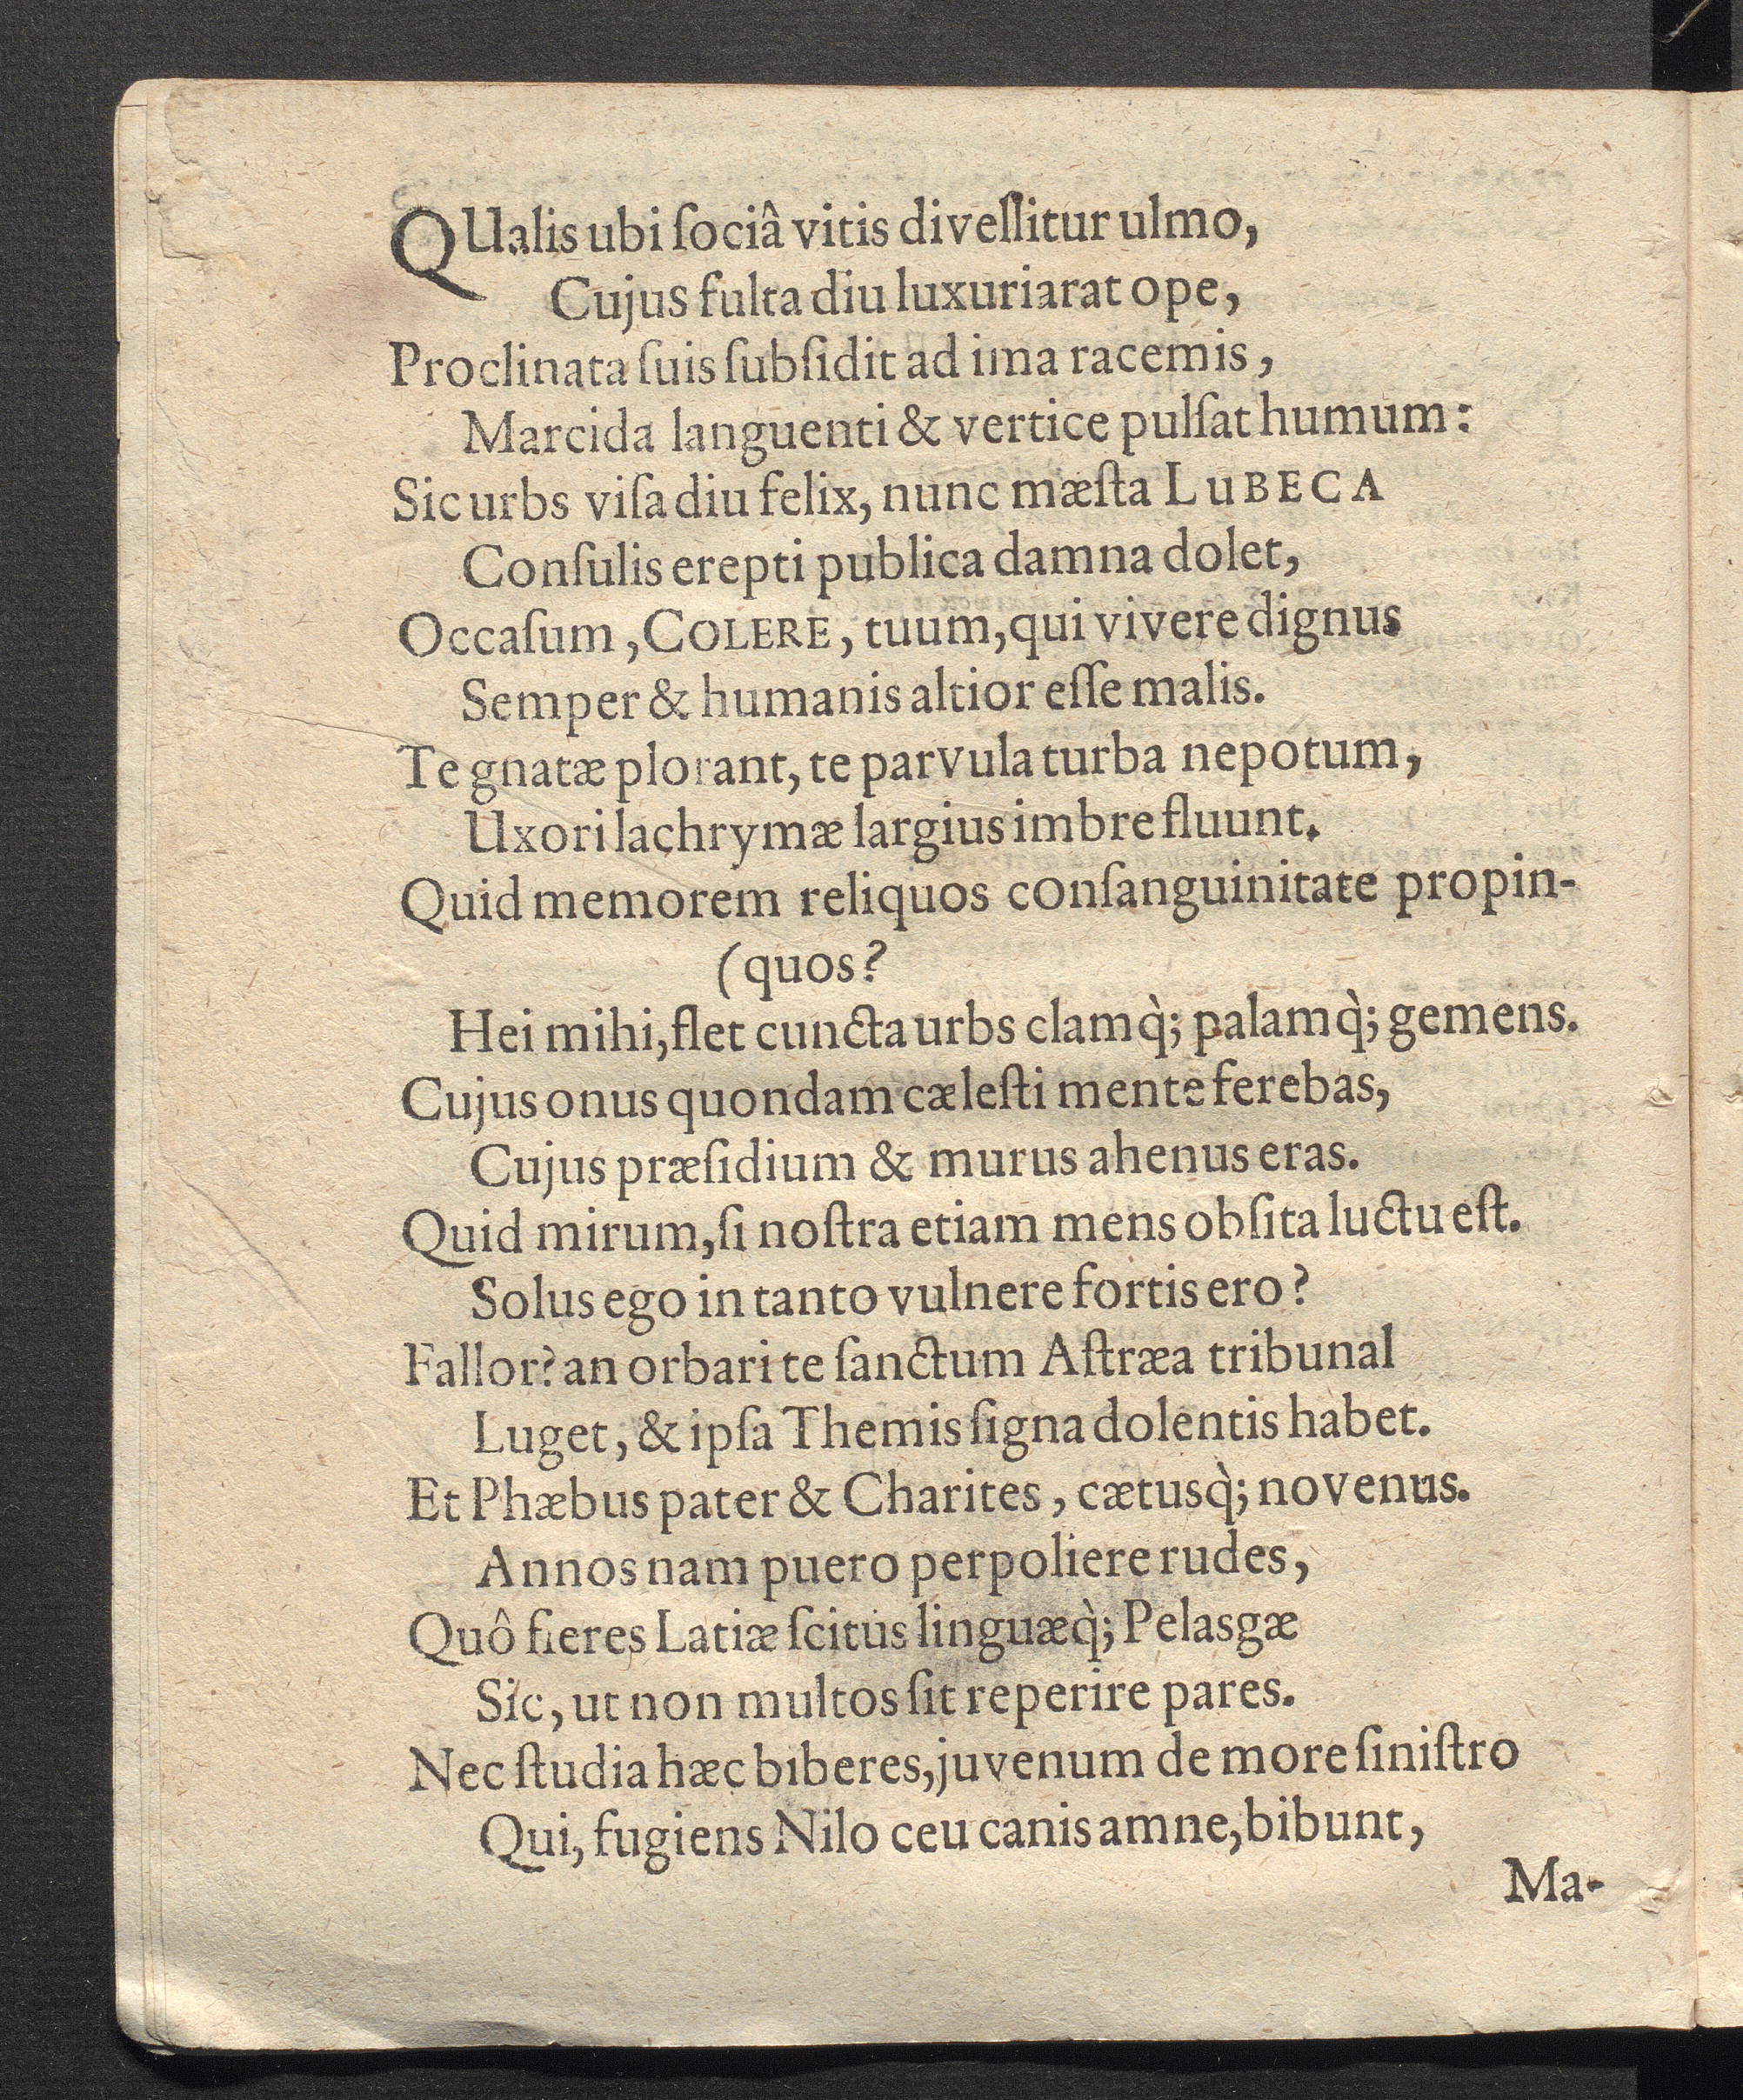 QUalis ubi ſociâ vitis divellitur ulmo,
Cujus fulta diu luxuriarat ope,
Proclinata ſuis ſubſidit ad ima racemis,
Marcida languenti & vertice pulſat humum:
Sic urbs viſa diu felix, nunc mæſta LuBECA
Conſulis erepti publica damna dolet,
Occaſum, COLERE, tuum, qui vivere dignus
Semper & humanis altior eſſe malis.
Te gnatæ plorant, te parvula turba nepotum,
Uxori lachrymæ largius imbre fluunt.
Quid memorem reliquos conſanguinitate propin-
(quos?
Hei mihi, flet cuncta urbs clamq̀; palamq̀; gemens.
Cujus onus quondam cæleſti mente ferebas,
Cujus præſidium & murus ahenus eras.
Quid mirum, ſi noſtra etiam mens obſita luctu eſt.
Solus ego in tanto vulnere fortis ero?
Fallor? an orbari te ſanctum Aſtræa tribunal
Luget, & ipſa Themis ſigna dolentis habet.
Et Phæbus pater & Charites, cætusq̀; novenus.
Annos nam puero perpoliere rudes,
Quô fieres Latiæ ſcitus linguæq̀; Pelasgæ
Sic, ut non multos ſit reperire pares.
Nec ſtudia hæc biberes, juvenum de more ſiniſtro
Qui, fugiens Nilo ceu canis amne, bibunt,
Ma-